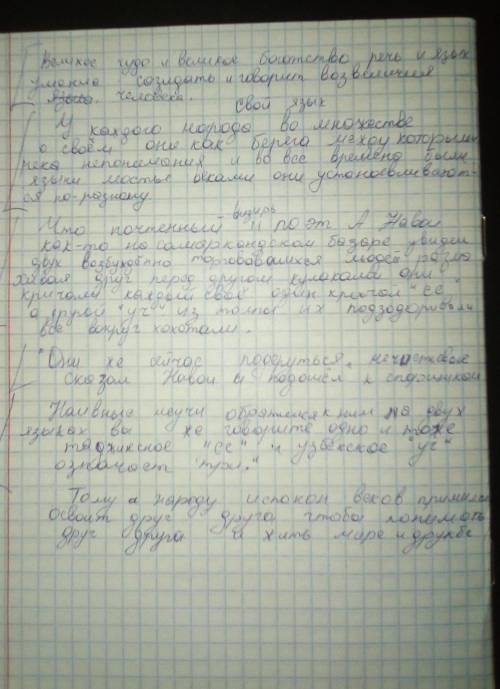 Великое чудо и великое богатство речь и язык
умение созидать и говорит возвеличил
языка. человека.
свой язык
У каждого народа во множестве
о своём они как берега между которыми
река непонимания и во все времена были
языки мостье веками они устанавливают-
ся по-разному.
визирь
Что почтенный и поэт А Навои
как-то на самаркандском базаре увидел
двух возбуждённо торговавшихся людей разма
хивая друг перед другом кулаками они
кричали каждый своё один кричал "се"
а другой "уч" из толпы их подзадоривали
все вокруг хохотали.
"Они же сейчас подерутся, несчастные
сказал Навои и подошёл к спорившим
Наивные неучи обратился к ним на двух
языках вы же говорите одно и тоже
таджикское "се" и узбекское "уч"
означает "три."
Тому и народу испокон веков
освоит друг друга чтобы понимать
друг друга и жить мире и дружбе